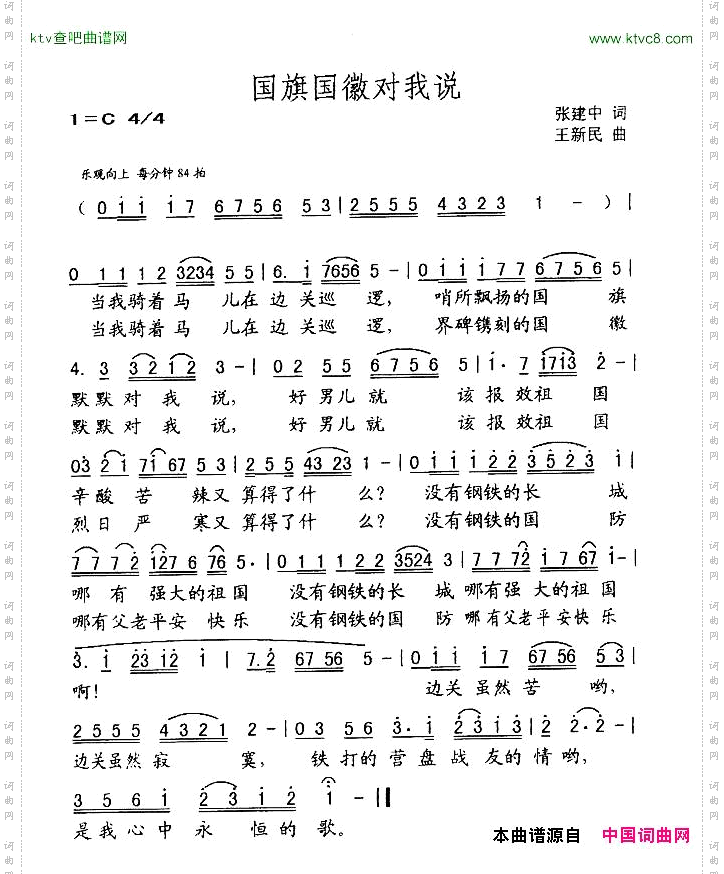 ktv查吧曲谱网 www.ktvc8.com
国旗国徽对我说
1=C 4/4
张建中 词
王新民 曲
乐观向上 每分钟84拍
(0 1 1 1 7 6 7 5 6 5 3 | 2 5 5 5 4 3 2 3 1 - ) |
0 1 1 1 2 3234 5 5 | 6. 1 7656 5 - | 0 1 1 1 7 7 6 7 5 6 5 |
当我骑着马 儿在边关巡 逻, 哨所飘扬的国 旗
当我骑着马 儿在边关巡 逻, 界碑镌刻的国 徽
4. 3 3 2 1 2 3 - | 0 2 5 5 6 7 5 6 5 | 1. 7 1713 2 - |
默默对 我 说, 好男儿就 该报效祖 国
默默对 我 说, 好男儿就 该报效祖 国
03 2 1 71 67 5 3 | 2 5 5 43 23 1 - | 0 1 1 1 2 2 3 5 2 3 1 |
辛酸 苦 辣又 算得了什 么? 没有钢铁的长 城
烈日 严 寒又 算得了什 么? 没有钢铁的国 防
7 7 7 2 127 6 76 5. | 0 1 1 1 2 2 3524 3 | 7 7 72 1 7 67 1 - |
哪 有 强大的祖国 没有钢铁的长 城 哪有强 大的祖国
哪有父老平安 快乐 没有钢铁的国 防 哪有父老平安快乐
3. 1 23 12 1 | 7.2 67 56 5 - | 0 1 1 1 7 67 56 5 3 |
啊! 边关虽然苦 哟,
2 5 5 5 4 3 2 1 2 - | 0 3 5 6 3. 1 2 3 1 3 | 2 2. 2 - |
边关虽然寂 寞, 铁打的营盘战友的情哟,
3 5 6 1 2 3 1 2 1 - ‖
是我心中永 恒的歌。
本曲谱源自 中国词曲网
词曲网